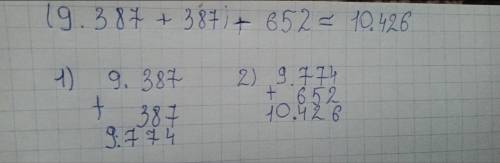 (9.387 + 387) + 652 = 10.426
1) 9.387 2) 9.774
+ 387 + 652
9.774 10.426